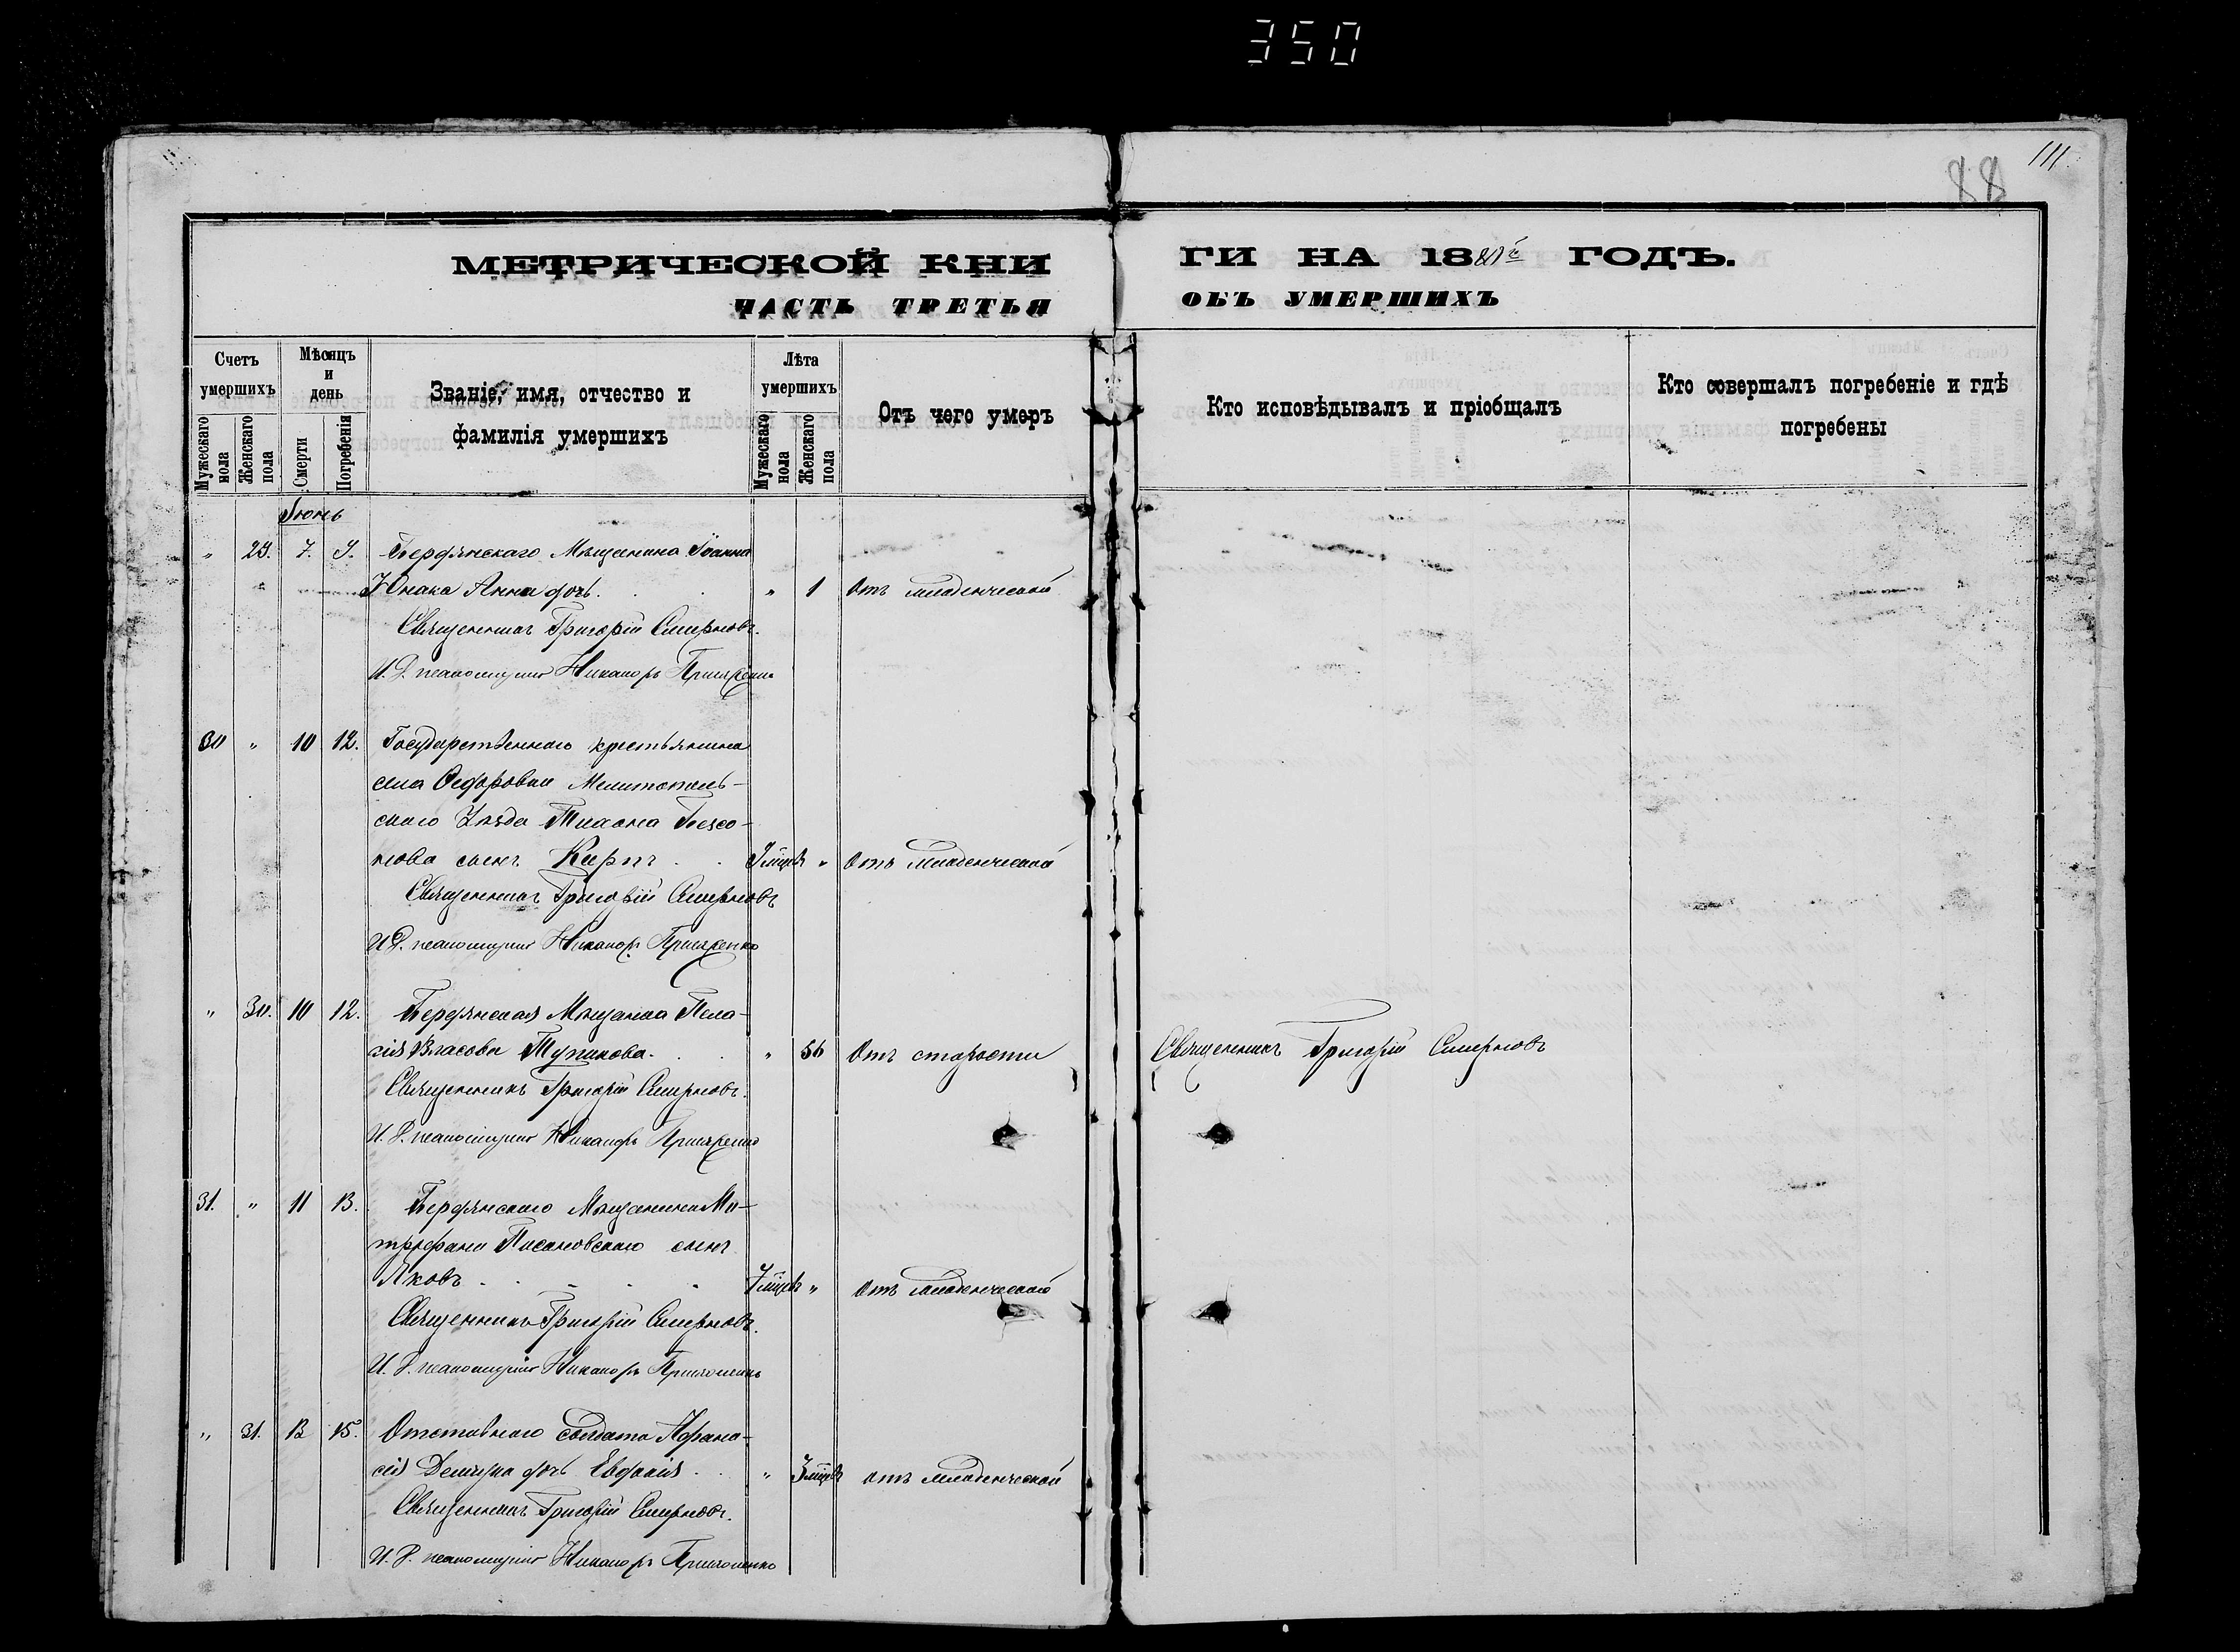 350
88
111
МЕТРИЧЕСКОЙ КНИ
ГИ НА 188 ГОДЪ.
ЧАСТЬ ТРЕТЬЯ
ОБЪ УМЕРШИХЪ
Счетъ умершихъ
Мѣсяцъ и день
Званіе, имя, отчество и фамилія умершихъ
Лѣта умершихъ
Отъ чего умеръ
Кто исповѣдывалъ и пріобщалъ
Кто совершалъ погребеніе и гдѣ погребены
Мужескаго пола
Женскаго пола
Смерти
Погребенія
Мужескаго пола
Женскаго пола
Іюнь
„ 29. 7. 9. Бердянскаго Мѣщанина Іоанна
Юнака Анна дочь. „ 1 Отъ младенческой
Священникъ Григорій Смирновъ.
И. Д. псаломщика Никаноръ
30 „ 10 12. Государственнаго крестьянина
села Ѳедоровки Мелитополь-
скаго Уѣзда Тихона
сынъ Кирпъ „ Отъ младенческой
Священникъ Григорій Смирновъ
И. Д. псаломщика Никаноръ
„ 30. 10 12. Бердянская Мѣщанка Пела-
гія Власова Тупикова. „ 56 Отъ старости Священникъ Григорій Смирновъ
Священникъ Григорій Смирновъ.
И. Д. псаломщика Никаноръ
31. „ 11 13. Бердянскаго Мѣщанина Ми-
трофана Писановскаго сынъ
Яковъ 7 мцвъ „ Отъ младенческой
Священникъ Григорій Смирновъ.
И. Д. псаломщика Никаноръ
„ 31. 13 15. Отставнаго солдата Афана-
сія дочь Евдокія „ 3 мцвъ отъ младенческой
Священникъ Григорій Смирновъ.
И. Д. псаломщика Никаноръ